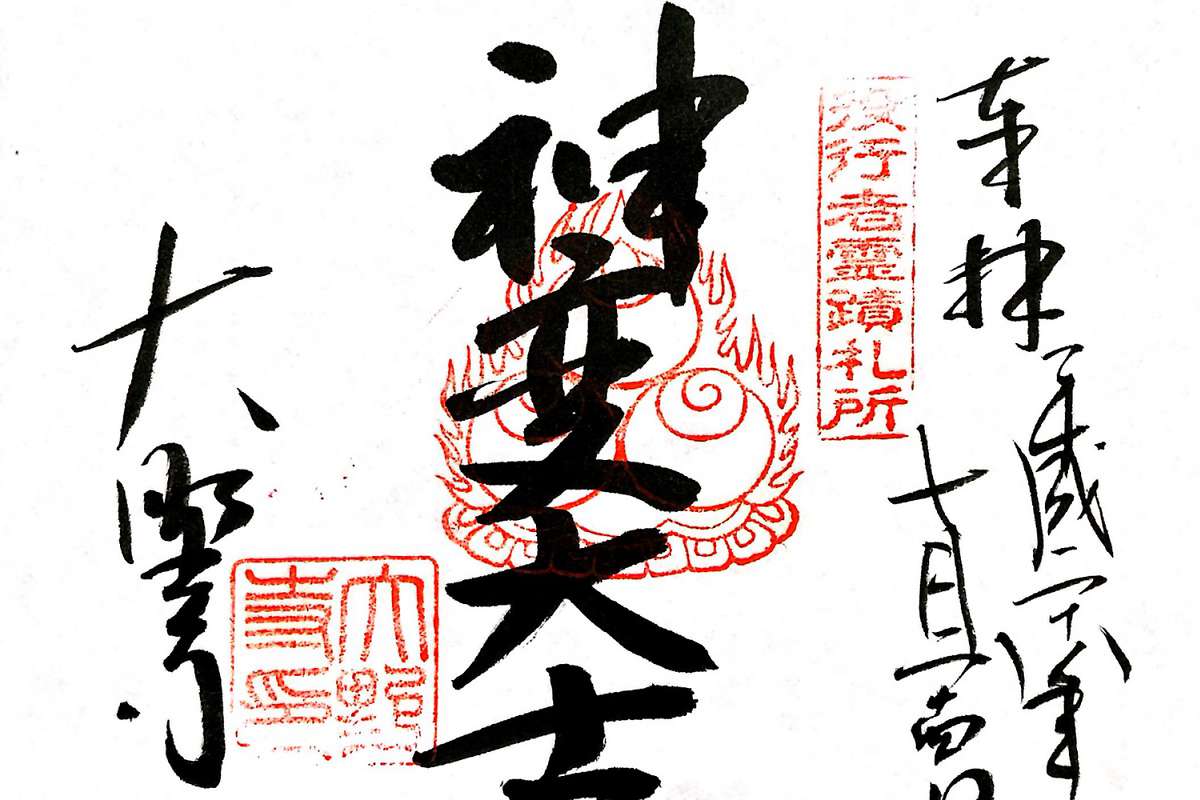 奉拝
平成二十八年
十月二
役行者霊蹟札所
神変大
大野寺印
大野寺